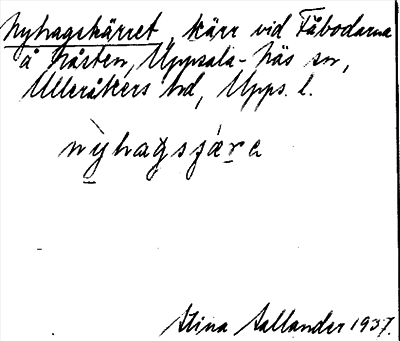 Nyhagskärret, kärr vid Fäbodarna
å Nåsten, Uppsala-Näs sn,
Ulleråkers hd, Upps. l.
nỳhagsɟær̠e
Stina Sallander 1937.